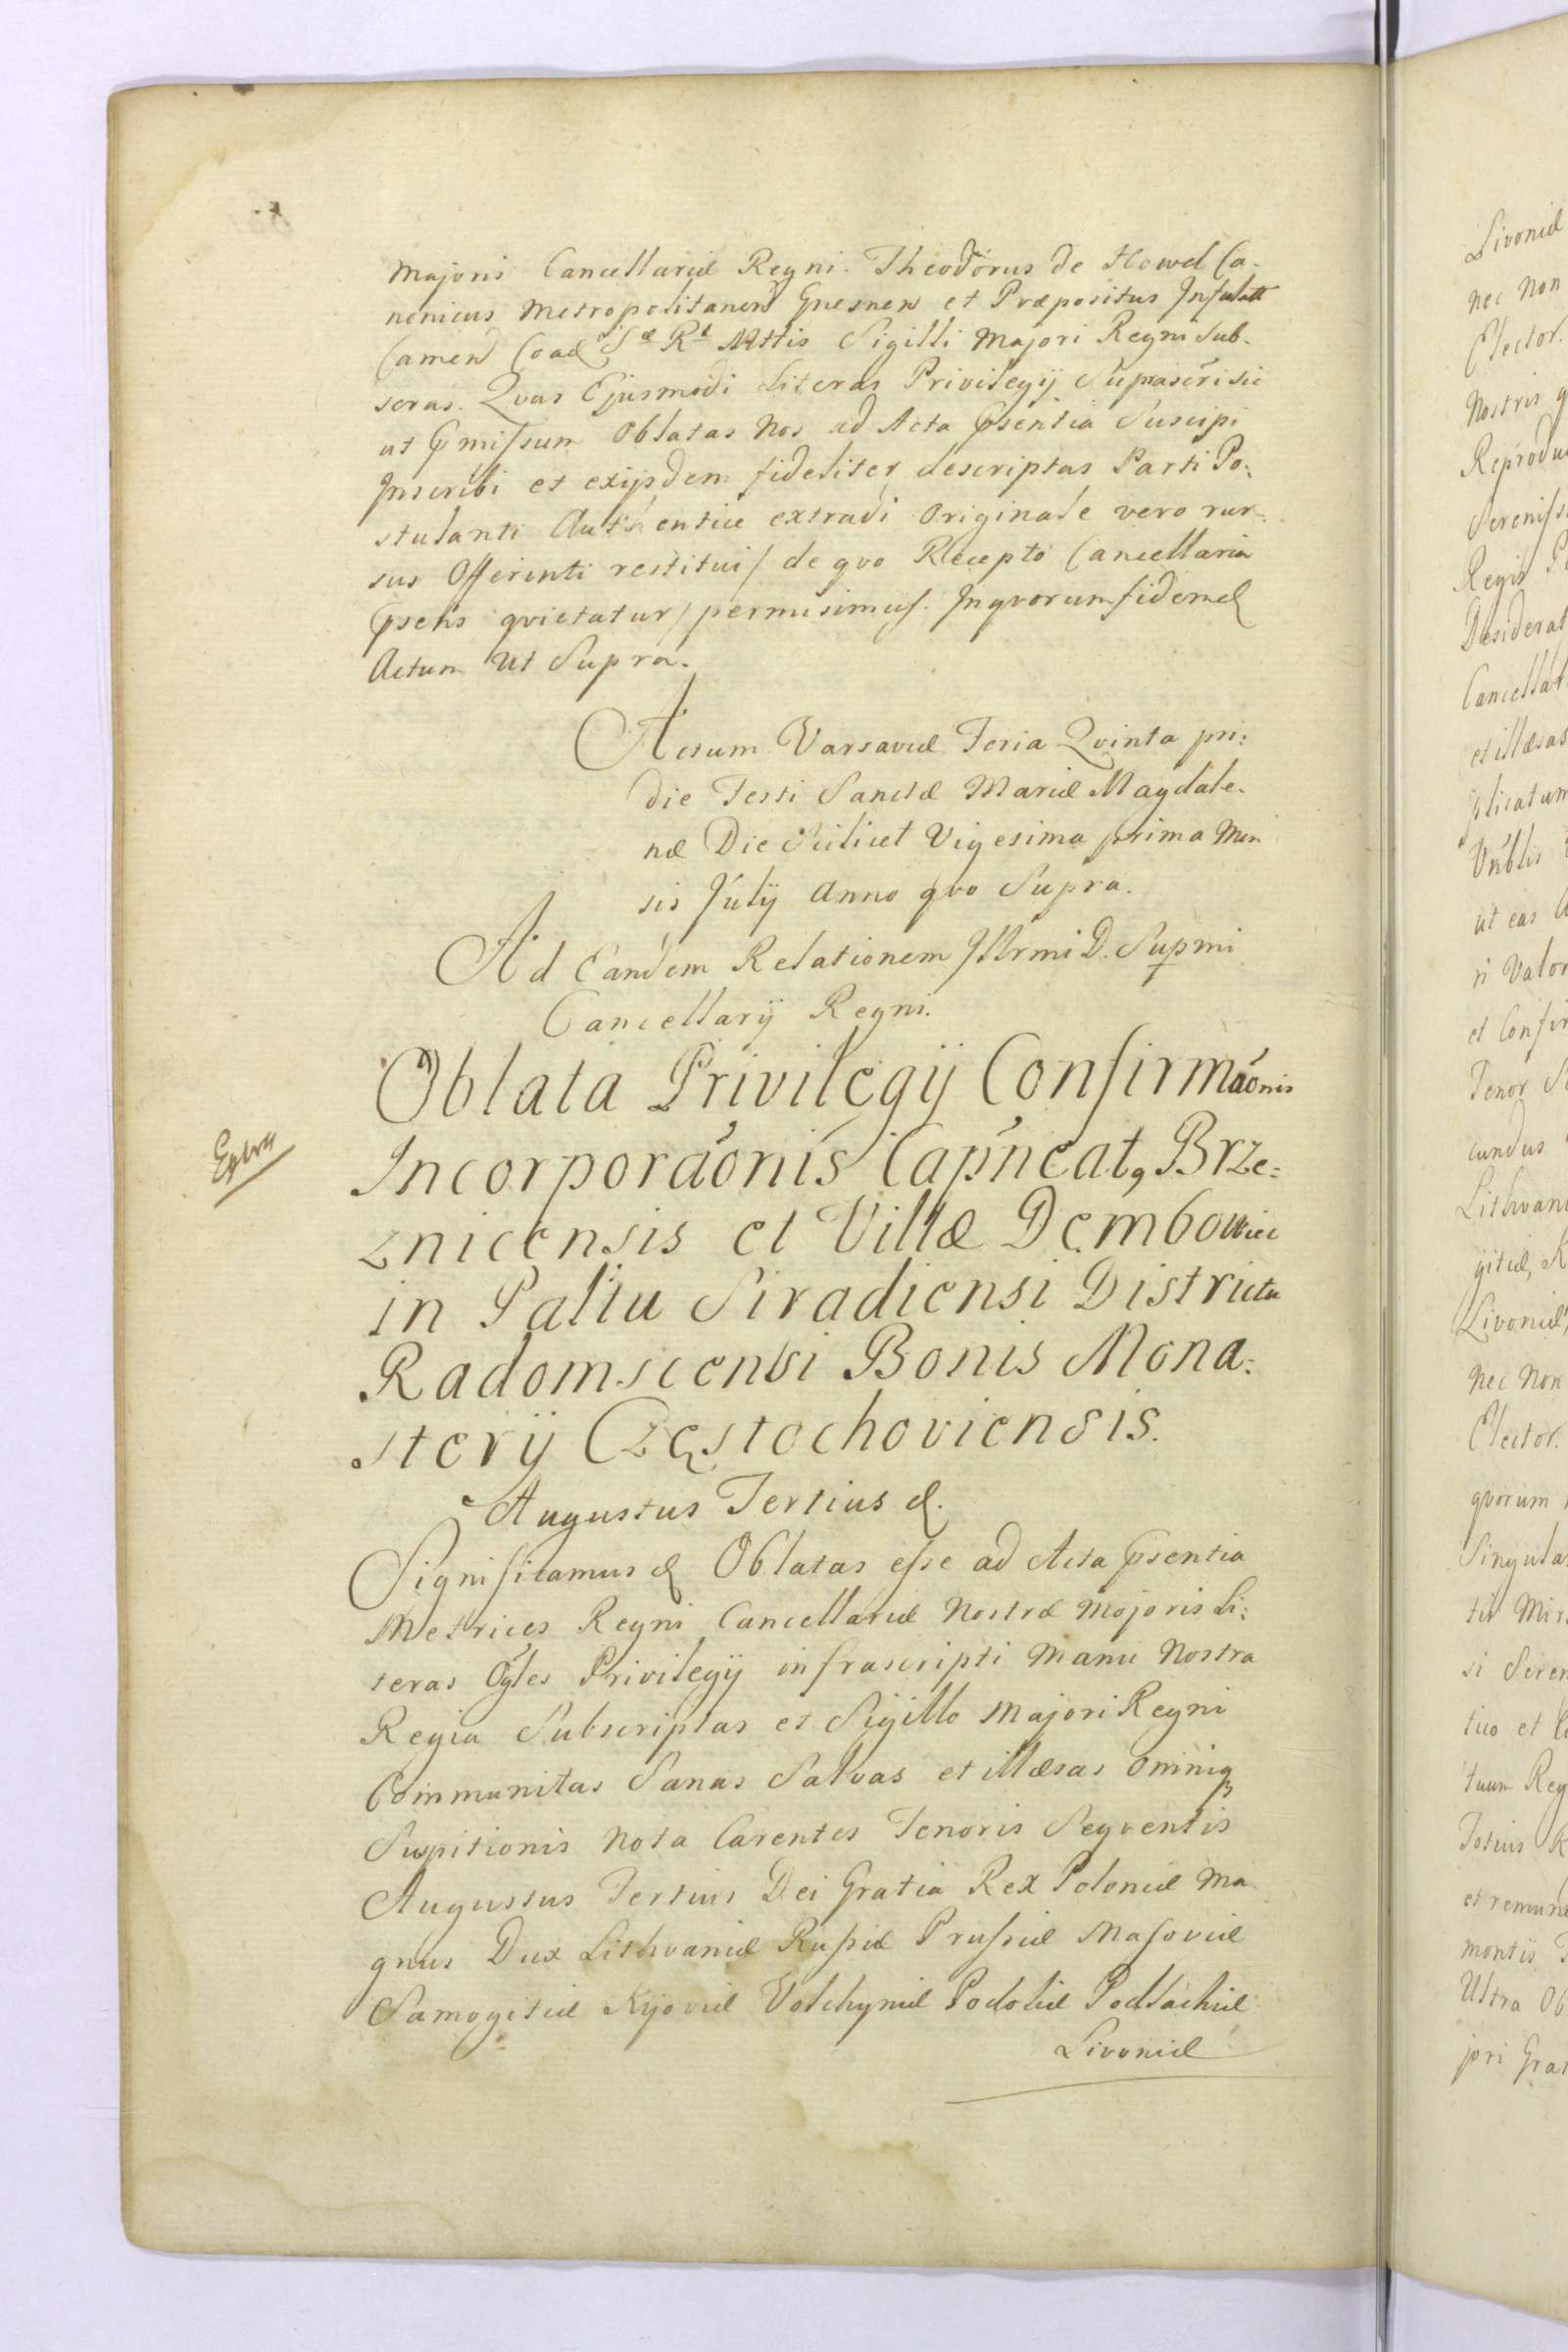 Majoris Cancellariæ Regni. Theodorus de Howel Ca-
nonicus Metropolitanen Gnesnen et Præpositus Infulatt
Camen Coad Sæ Ræ Mttis Sigilli Majori Regni Sub-
scras. Qvas Ejusmodi Literas Privilegij Suprascri sic
ut Pmissum Oblatas Nos ad Acta Psentia Suscipi
Inscribi et exijsdem fideliter descriptas Parti Po:
stulanti Authentice extradi Originale vero rur-
sus Offerenti restitui / de qvo Recepto Cancellaria
Psens qvietatur / permisimus. Inqvorum fidem &
Actum Ut Supra.
Actum Varsaviæ Feria Qvinta pri:
die Festi Sanctæ Mariæ Magdale-
næ Die Scilicet Vigesima prima Men
sis July Anno qvo Supra.
Ad Eandem Relationem Illrmi D. Supmi
Cancellarij Regni.
Extra
Oblata Privilegij Confirmaonis
Incorporaonis Capneat, Brze:
znicensis et Villæ Dembowiec
in Paltu Siradiensi Districtu
Radomscensi Bonis Mona:
sterij Częstochoviensis.
Augustus Tertius &.
Significamus & Oblatas esse ad Acta Psentia
Metrices Regni Cancellariæ Nostræ Majoris Li:
teras Ogles Privilegij infrascripti Manu Nostra
Regia Subscriptas et Sigillo Majori Regni
Communitas Sanas Salvas et illæsas Omniq
Suspitionis Nota Carentes Tenoris Seqventis
Augustus Tertius Dei Gratia Rex Poloniæ Ma-
gnus Dux Lithvaniæ Russiæ Prussiæ Masoviæ
Samogitiæ Kijoviæ Volhyniæ Podoliæ Podlachiæ
Livoniæ
Livoniæ
nec non
Elector.
Nostris
Regis
Desiderat
Cancellat
et illæsas
plicatum
ut eas
ri Valor
et Confir
Tenor
cundus
Lithvani
gitiæ, K
Livoniæ,
nec Non
Elector.
qvorum
Singula
si Seren
tuum Reg
Totius R
et remune
montis
Ultra Ob
jori Grat